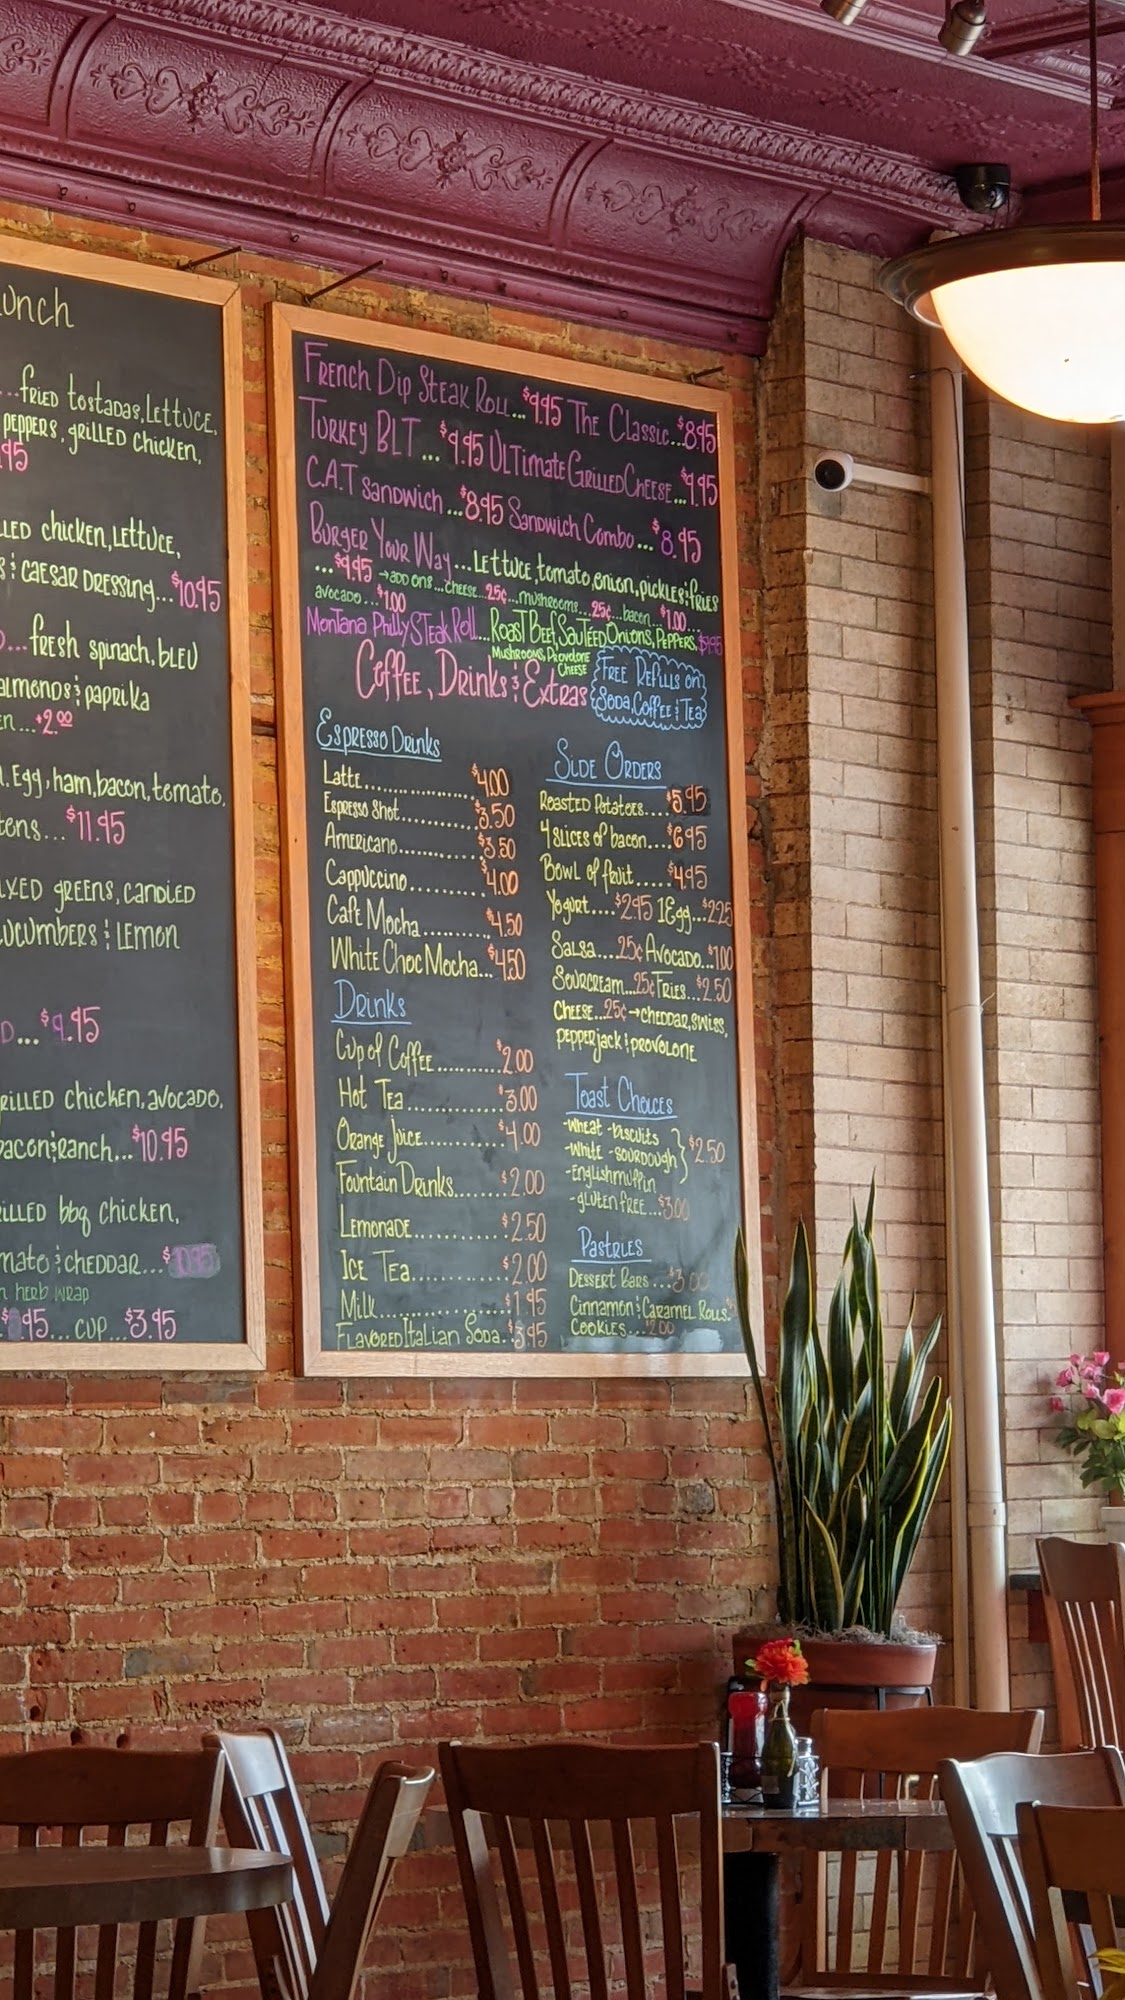 unch
...fried tostadas, Lettuce,
peppers, grilled chicken,
95
lled chicken, Lettuce,
s & Caesar Dressing...$10.95
...fresh spinach, bleu
almonds & paprika
en...+2.00
. Egg, ham, bacon, tomato,
tons...$11.95
ixed greens, candied
ucumbers & Lemon
D...$9.95
rilled chicken, avocado,
bacon & ranch...$10.95
illed bbq chicken,
mato & cheddar...$10.95
n herb wrap
95...cup...$3.95
French Dip Steak Roll...$9.95 The Classic...$8.95
Turkey BLT...$9.95 Ultimate Grilled Cheese...$9.95
C.A.T sandwich...$8.95 Sandwich Combo...$8.95
Burger Your Way...Lettuce, tomato, onion, pickles & fries
...$9.95 → add ons...cheese...25¢...mushrooms...25¢...bacon...$1.00...
avocado...$1.00
Montana Philly Steak Roll...Roast Beef, Sautéed Onions, Peppers, $9.95
Mushrooms, Provolone
Cheese
Coffee, Drinks & Extras
Free Refills on
Soda, Coffee & Tea
Espresso Drinks
Latte................$4.00
Espresso Shot...........$3.50
Americano............$3.50
Cappuccino..........$4.00
Cafe Mocha..........$4.50
White Choc Mocha...$4.50
Drinks
Cup of Coffee...........$2.00
Hot Tea..............$3.00
Orange Juice...........$4.00
Fountain Drinks.......$2.00
Lemonade............$2.50
Ice Tea.............$2.00
Milk................$1.95
Flavored Italian Soda..$3.95
Side Orders
Roasted Potatoes...$5.95
4 slices of bacon....$6.95
Bowl of fruit.....$4.95
Yogurt....$2.95 1 Egg...$2.25
Salsa....25¢ Avocado...$1.00
Sourcream...25¢ Fries...$2.50
Cheese...25¢ → cheddar, swiss,
pepperjack & provolone
Toast Choices
-wheat -biscuits
-white -sourdough } $2.50
-english muffin
-gluten free...$3.00
Pastries
Dessert Bars...$3.00
Cinnamon & Caramel Rolls..
Cookies...$2.00